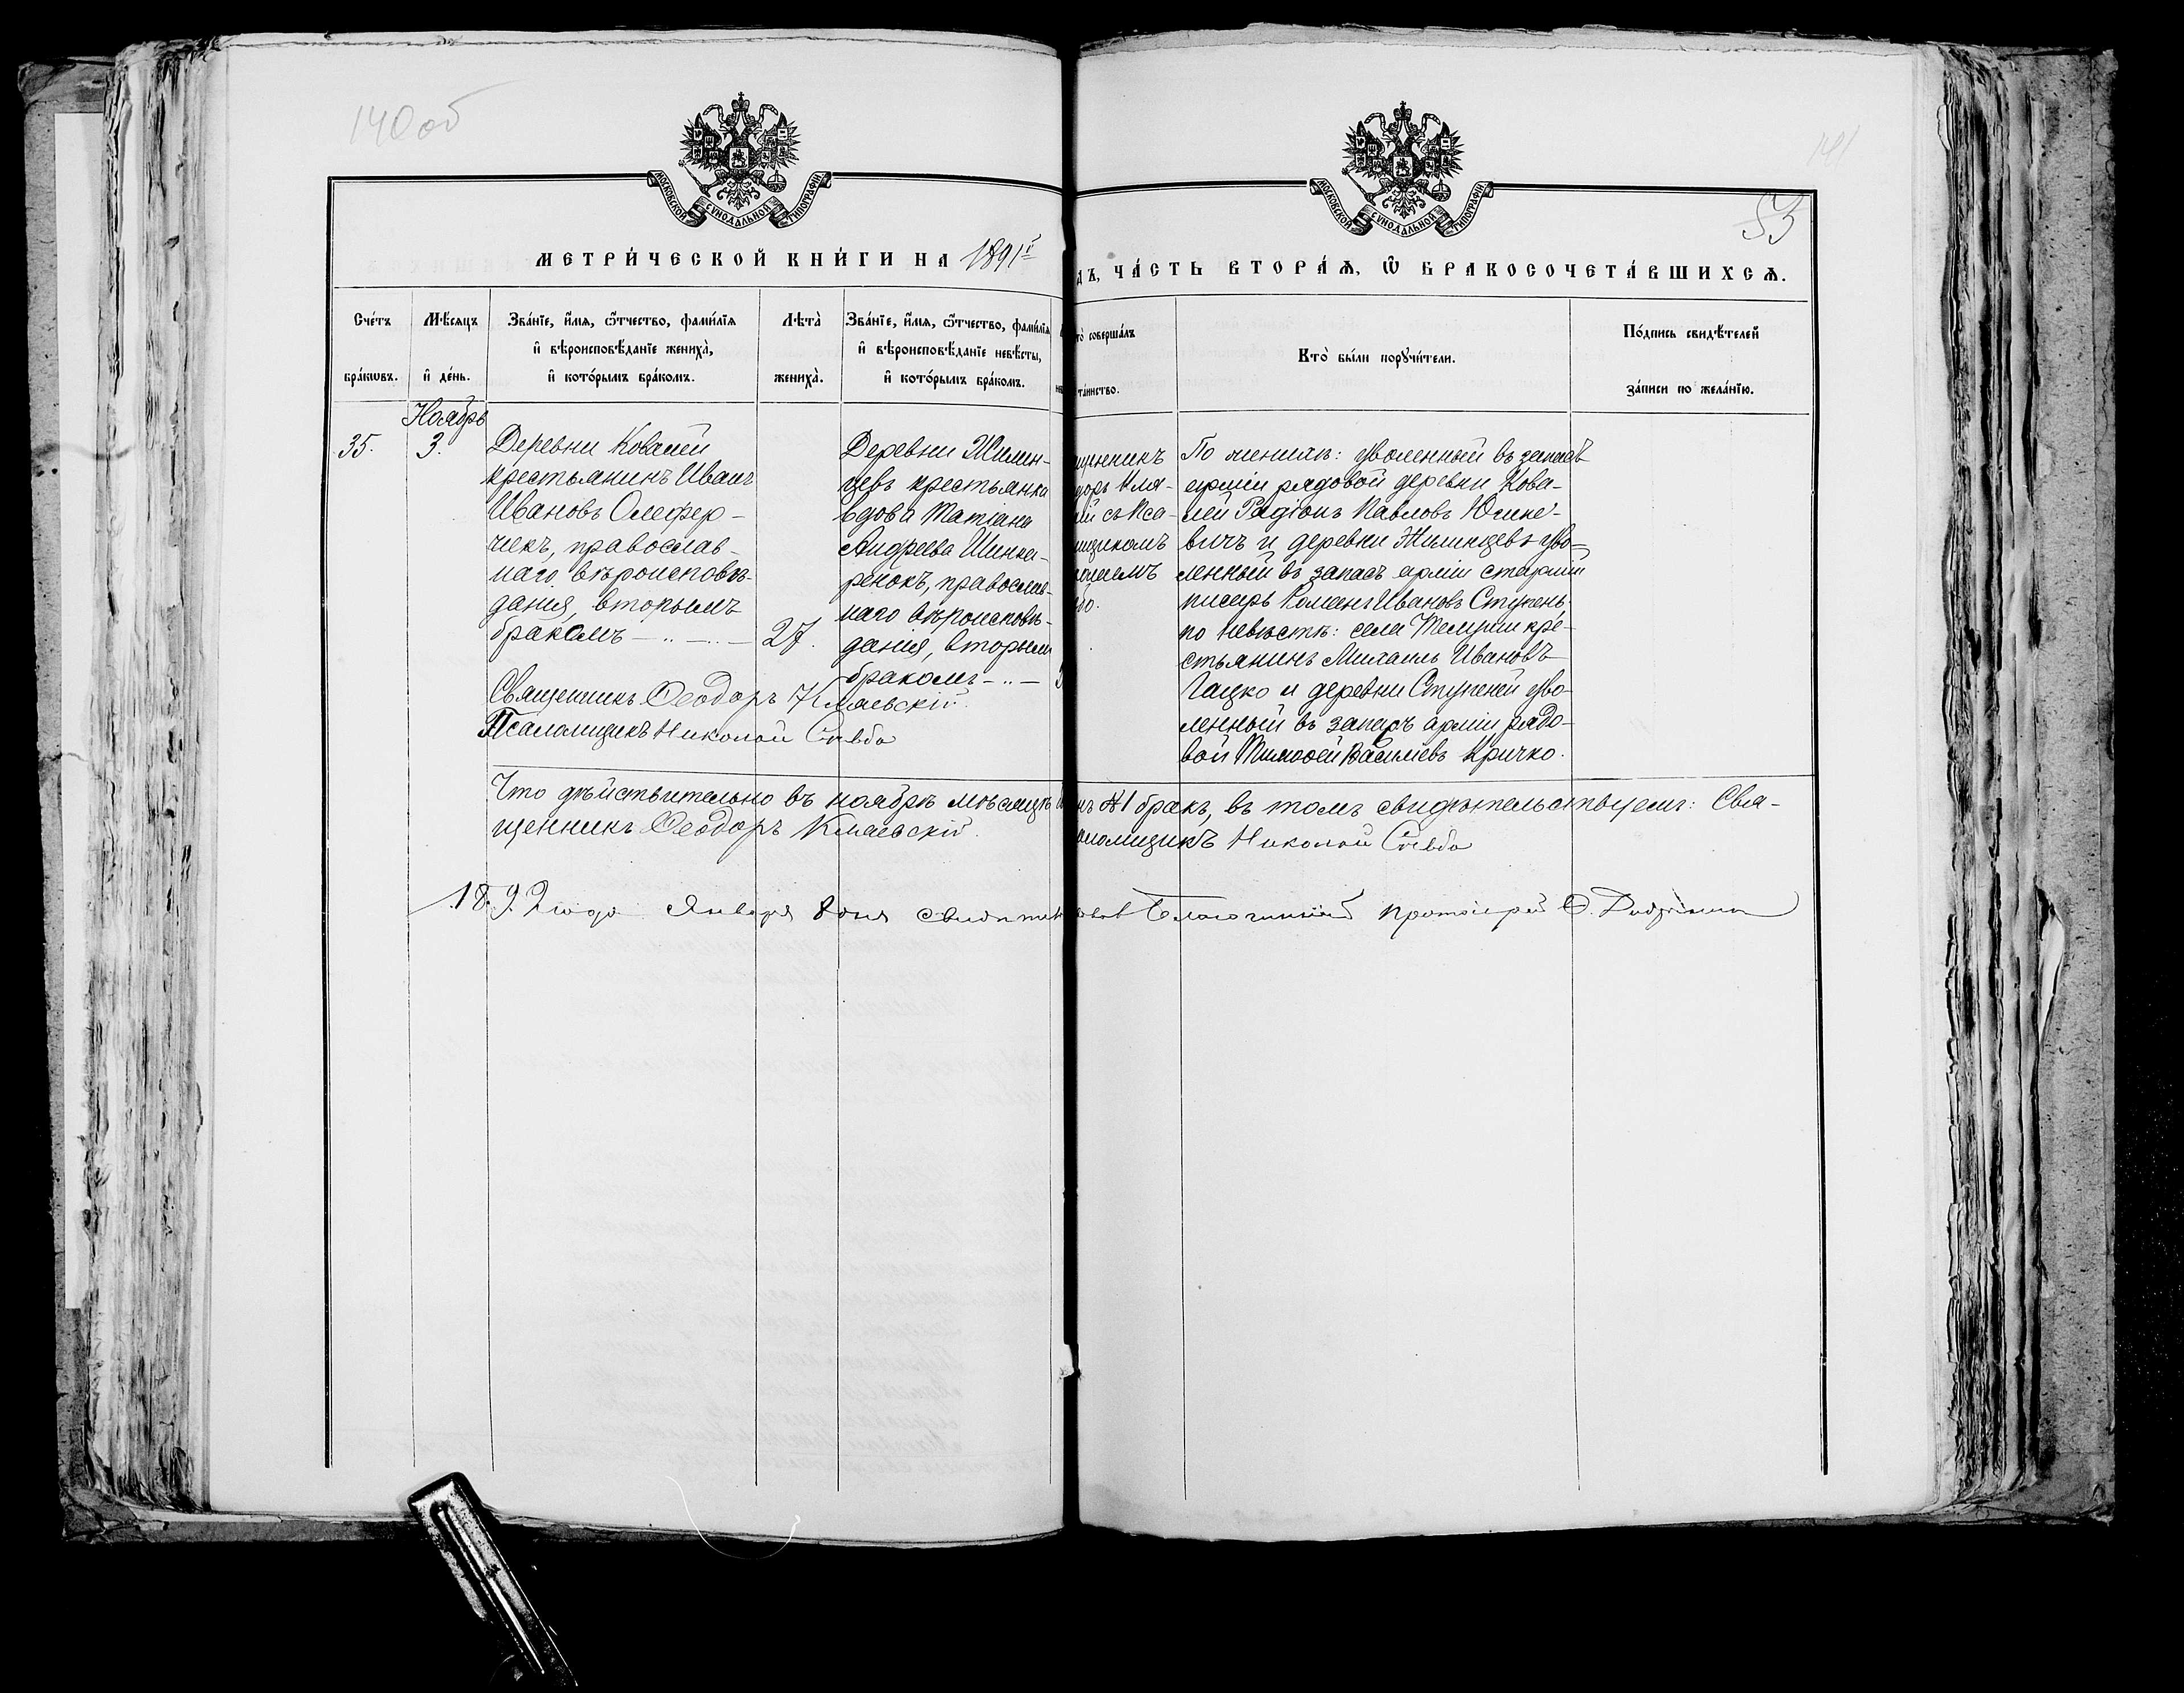 140 об
141
53
МОСКОВСКОЙ СУНОДАЛЬНОЙ ТИПОГРАФІИ
МОСКОВСКОЙ СУНОДАЛЬНОЙ ТИПОГРАФІИ
МЕТРИ́ЧЕСКОЙ КНИ́ГИ НА 1891й
дъ, ЧА́СТЬ ВТОРА́Ѧ, Ѽ БРАКОСОЧЕТА́ВШИХСѦ.
Сче́тъ бра́кѡвъ.
Мѣ́сяцъ и҆ де́нь.
Зва́нїе, и҆́мѧ, ѻ҆́тчество, фами́лїѧ
и҆ вѣроисповѣ́данїе жениха̀,
и҆ кото́рымъ бра́комъ.
Лѣта̀
жениха̀.
Зва́нїе, и҆́мѧ, ѻ҆́тчество, фами́лїѧ
и҆ вѣроисповѣ́данїе невѣ́сты,
и҆ кото́рымъ бра́комъ.
то̀ соверша́лъ
та́инство.
Кто̀ бы́ли порꙋчи́тели.
По́дпись свидѣ́телей
за́писи по жела́нїю.
Ноябрь
35.
3.
Деревни Ковалей
крестьянинъ Иванъ
Ивановъ Олефер-
чикъ, православ-
наго вѣроисповѣ-
данія, вторымъ
бракомъ
27.
Деревни Жилин-
цевъ крестьянка
вдова Татіана
Андреева Шинка-
ренокъ, православ-
наго вѣроисповѣ-
данія, вторымъ
бракомъ
щенникъ
доръ Кма-
ій съ Пса-
мщикомъ
колаемъ
бо.
По женихѣ: уволенный въ запасъ
арміи рядовой деревни Кова-
лей Радіонъ Павловъ Юшке-
вичъ и деревни Жилинцевъ уво-
ленный въ запасъ арміи старшій
писарь Романъ Ивановъ Ступень.
по невѣстѣ: села Телуши кре-
стьянинъ Михаилъ Ивановъ
Гацко и деревни Ступеней уво-
ленный въ запасъ арміи рядо-
вой Тимоѳей Василіевъ Кричко.
Священникъ Ѳеодоръ Кмаевскій.
Псаломщикъ Николай
Что дѣйствительно въ ноябрѣ мѣсяцѣ
нъ №1 бракъ, въ томъ свидѣтельствуемъ: Свя-
щенникъ Ѳеодоръ Кмаевскій.
аломщикъ Николай
1892 года Января 8 дня Благочинный протоіерей Ѳ.